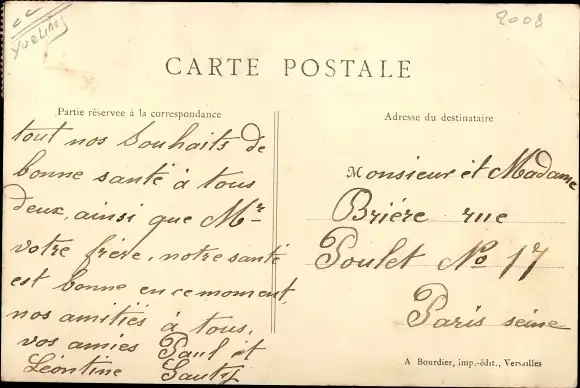 Yvelines
2008
CARTE POSTALE
Partie réservee à la correspondance
Adresse du destinataire
tout nos Souhaits de
bonne santé à tous
deux, ainsi que Mr
votre frère, notre santé
est bonne en ce moment,
nos amitiés à tous,
vos amies Paul et
Léontine
Monsieur et Madame
Briére rue
Poulet No 17
Paris seine
A Bourdier, imp.-édit., Versailles